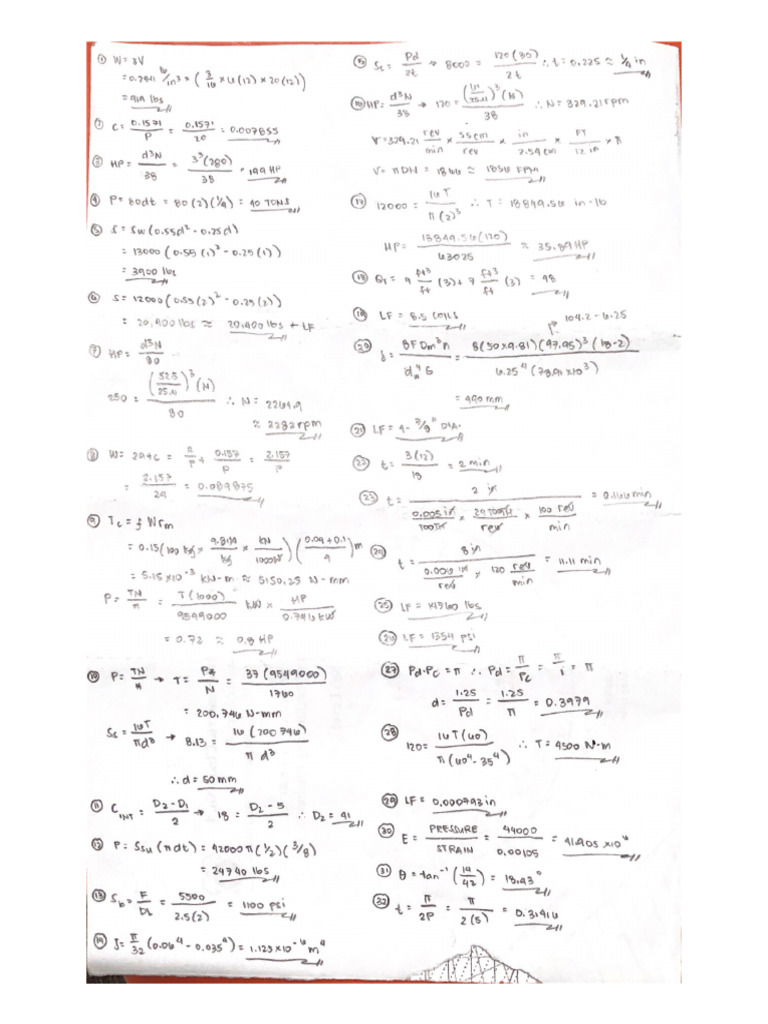 ① W = γV
= 0.2841 lb/in³ × (3/16 × 4(12) × 20(12))
= 919 lbs
② C = 0.1571/P = 0.1571/20 = 0.007855
③ HP = d³N/38 = 3³(280)/38 = 199 HP
④ P = 80dt = 80(2)(1/4) = 40 TONS
⑤ S = Sw(0.55d² - 0.25d)
= 13000(0.55(1)² - 0.25(1))
= 3900 lbs
⑥ S = 12000(0.55(2)² - 0.25(2))
= 20,400 lbs ≈ 20,400 lbs + LF
⑦ HP = d³N/80
250 = (52.5/25.4)³(N)/80 ∴ N = 2264.9
≈ 2282 rpm
⑧ W = 2a+c = 2/P + 0.157/P = 2.157/P
= 2.157/24 = 0.089875
⑨ Tc = f Wrm
= 0.15(100 kg × 9.81N/kg × kN/1000N)(0.04+0.1/4)m
= 5.15×10⁻³ kN-m ≈ 5150.25 N-mm
P = TN/n = T(1000)/9549000 kW × HP/0.746 kW
= 0.72 ≈ 0.8 HP
⑩ P = TN/n → T = Pn/N = 37(9549000)/1760
= 200,746 N-mm
Ss = 16T/πd³ → 8.13 = 16(200746)/πd³
∴ d = 50 mm
⑪ C INT = D2-D1/2 → 18 = D2-5/2 ∴ D2 = 41
⑫ P = Ssu(πdt) = 42000π(1/2)(3/8)
= 24740 lbs
⑬ Sb = F/DL = 5500/2.5(2) = 1100 psi
⑭ J = π/32(0.06⁴ - 0.035⁴) = 1.123×10⁻⁶ m⁴
⑮ St = Pd/2t → 8000 = 120(30)/2t ∴ t = 0.225 ≈ 1/4 in
⑯ HP = d³N/38 → 120 = (/25.4)³(N)/38 ∴ N = 329.21 rpm
V = 329.21 rev/min × 55cm/rev × in/2.54cm × FT/12 in × π
V = πDN = 1866 ≈ 1856 FPM
⑰ 12000 = 16T/π(2)³ ∴ T = 18849.56 in-lb
HP = 18849.56(120)/63025 ≈ 35.89 HP
⑱ Qr = 9 ft³/ft (3) + 7 ft³/ft (3) = 48
⑲ LF = 8.5 COILS 104.2 - 6.25
⑳ δ = 8FDm³n/dw⁴G = 8(50×9.81)(97.95)³(18-2)/6.25⁴(78.91×10³)
= 490 mm
㉑ LF = 4- 3/8" DIA.
㉒ t = 3(12)/18 = 2 min
㉓ t = 2 in/0.005in/TOOTH × 24 TOOTH/rev × 100 rev/min = 0.166 min
㉔ t = 8 in/0.006 in/rev × 120 rev/min = 11.11 min
㉕ LF = 14760 lbs
㉖ LF = 1354 psi
㉗ Pd·Pc = π ∴ Pd = π/Pc = π/1 = π
d = 1.25/Pd = 1.25/π = 0.3979
㉘ 120 = 16T(60)/π(60⁴-35⁴) ∴ T = 4500 N-m
㉙ LF = 0.000793 in
㉚ E = PRESSURE/STRAIN = 44000/0.00105 = 41.905 ×10⁶
㉛ θ = tan⁻¹(14/42) = 18.43°
㉜ t = π/2P = π/2(5) = 0.31416